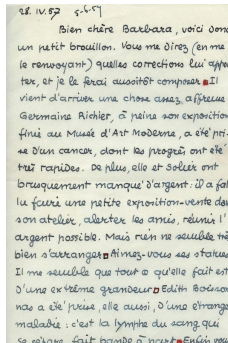 28.IV.57 5-6.57
Bien chère Barbara, voici donc
un petit brouillon. Vous me direz (en me
le renvoyant) quelles corrections lui appor-
ter, et je le ferai aussitôt composer. Il
vient d'arriver une chose assez affreuse
Germaine Richier, à peine son exposition
finie au Musée d'Art Moderne, a été pri-
se d'un cancer, dont les progrès ont été
très rapides. De plus, elle et Solier ont
brusquement manqué d'argent: il a fal
lu faire une petite exposition-vente dans
son atelier, alerter les amis, réunir l'
argent possible. Mais rien ne semble très
bien s'arranger. Aimez-vous ses statues
Il me semble que tout ce qu'elle fait est
d'une extrême grandeur. Edith Boisson
nas a été prise, elle aussi, d'une étrange
maladie: c'est la lymphe du sang qui
se sépare, fait bande à part. Enfin vous